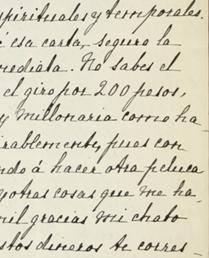 spirituales y temporales.
é esa carta, seguro la
mediata. No sabes el
el giro por 200 pesos,
y millonaria como ha-
irablemente, pues con
ndo á hacer otra peluca
y otras cosas que me ha-
mil gracias mi chato
stos dineros te corres-